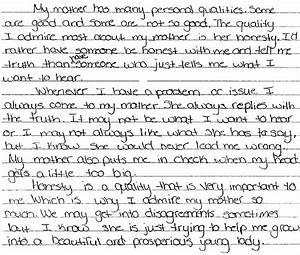 My mother has many personal qualities. Some
are good and some are not so good. The quality
I admire most about my mother is her honesty. I'd
rather have someone be honest with me and tell me
truth than have someone who just tells me what I
want to hear.
Whenever I have a problem or issue I
always come to my mother. She always replies with
the truth. It may not be what I want to hear
or I may not always like what she has to say,
but I know she would never lead me wrong.
My mother also puts me in check when my head
gets a little too big.
Honesty is a quality that is very important to
me. Which is why I admire my mother so
much. We may get into disagreements sometimes
but I know she is just trying to help me grow
into a beautiful and prosperious young lady.